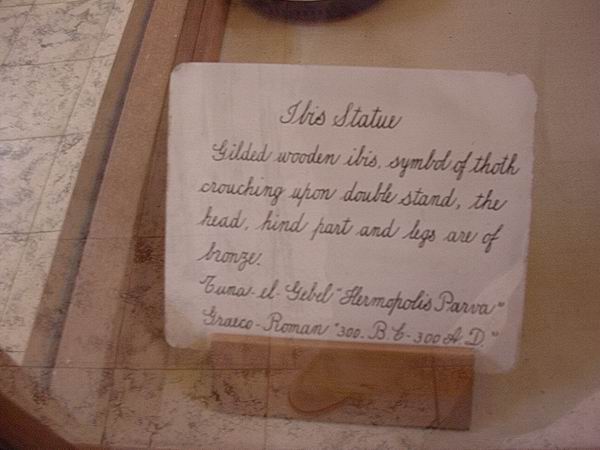 Ibis Statue
Gilded wooden ibis, symbol of thoth
crouching upon double stand, the
head, hind part and legs are of
bronze.
Tuna-el-Gebel "Hermopolis Parva"
Graeco-Roman "300.B.C-300 A.D."